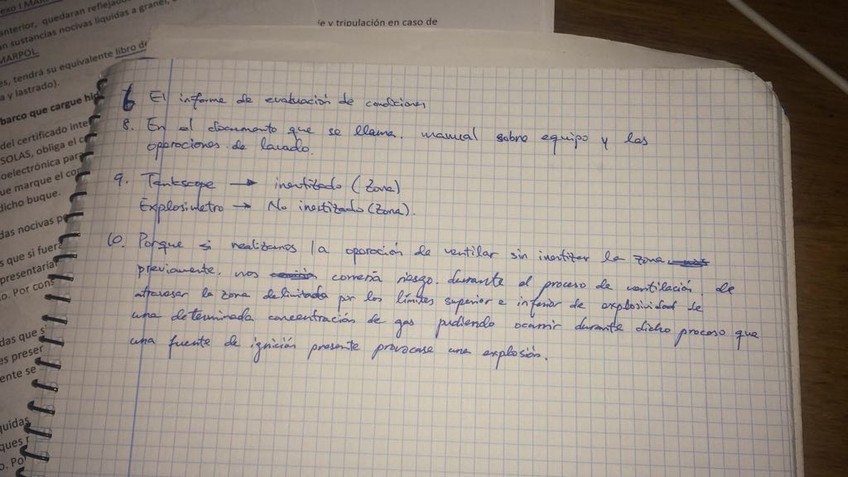 exo I MAR
anterior, quedaran reflejado
an sustancias nocivas liquidas a granel,
MARPOL.
es, tendrá su equivalente libro de
a y lastrado).
barco que cargue hi
del certificado inte
SOLAS, obliga el c
oelectrónica par
ue marque el co
dicho buque.
das nocivas p
s que si fuer
presentaría
o. Por con
das que s
es preser
ente se
quidas
ques
o. Po
y tripulación en caso de
6 El informe de evaluación de condiciones
8. En el documento que se llama. manual sobre equipo y las
operaciones de lavado.
9. Tankscope → inertizado (Zona)
Explosímetro → No inertizado (Zona).
10. Porque si realizamos la operación de ventilar sin inertizar la zona
previamente, nos correría riesgo, durante el proceso de ventilación, de
atravesar la zona delimitada por los límites superior e inferior de explosividad de
una determinada concentración de gas pudiendo ocurrir durante dicho proceso que
una fuente de ignición presente provocase una explosión.